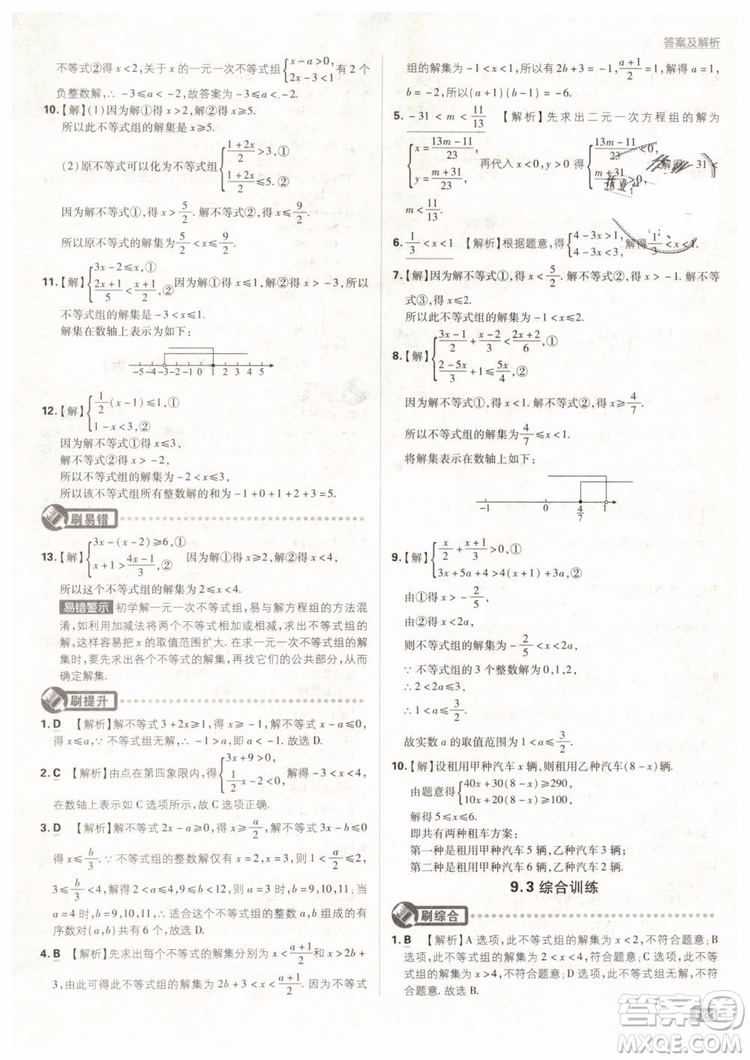 答案及解析
不等式②得 x<2,关于 x 的一元一次不等式组{x-a>0, 2x-3<1 有 2 个
负整数解,∴ -3≤a<-2,故答案为 -3≤a<-2.
10.【解】(1)因为解①得 x>3,解②得 x≥5.
所以此不等式组的解集是 x≥5.
(2)原不等式可以化为不等式组{(1+2x)/2>3,① (1+2x)/2≤5,②
因为解不等式①,得 x>5/2,解不等式②,得 x≤9/2,
所以原不等式的解集为 5/2<x≤9/2.
11.【解】{3x-2≤x,① (2x+1)/5<(x+1)/2,② 因为解①得 x≤1,解②得 x>-3,所以
不等式组的解集是 -3<x≤1.
解集在数轴上表示为如下:
-5 -4 -3 -2 -1 0 1 2 3 4
12.【解】{1/2(x-1)≤1,① 1-x<3,②
因为解不等式①得 x≤3,
解不等式②得 x>-2,
所以不等式组的解集为 -2<x≤3,
所以该不等式组所有整数解的和为 -1+0+1+2+3=5.
刷易错
13.【解】{3x-(x-2)≥6,① x+1>(4x-1)/3,② 因为解①得 x≥2,解②得 x<4,
所以这个不等式组的解集为 2≤x<4.
易错警示 初学解一元一次不等式组,易与解方程组的方法混
淆,如利用加减法将两个不等式相加或相减,求出不等式组的
解,这样容易把 x 的取值范围扩大.在求一元一次不等式组的解
集时,要先求出各个不等式的解集,再求它们的公共部分,从而
确定解集.
刷提升
1. D 【解析】解不等式 3+2x≥1,得 x≥-1,解不等式 x-a<0,
得 x<a.∵ 不等式组无解,∴ a≤-1.故选 D.
2. C 【解析】由点在第四象限内,得{3x+9>0, 1/2x-2<0, 得 -3<x<4,
在数轴上表示如 C 选项所示,故 C 选项正确.
3. D 【解析】解不等式 2x-a≥0,得 x≥a/2,解不等式 3x-b≤0,
得 x≤b/3.∵ 不等式组的整数解仅有 x=2,x=3,∴ 1<a/2≤2,
3≤b/3<4,解得 2<a≤4,9≤b<12,则 a=3 时,b=9,10,11;当
a=4 时,b=9,10,11,∴ 适合这个不等式组的整数 a,b 组成的有
序数对 (a,b) 共有 6 个,故选 D.
4. B 【解析】先求出每个不等式的解集分别为 x<(a+1)/2 和 x>2b+
3,由题意可知不等式组的解集为 2b+3<x<(a+1)/2,又因为不等式
组的解集为 -1<x<1,所以有 2b+3=-1,(a+1)/2=1,即 a=1,b=
-2,所以 (a+1)(b-1)=-6.
5. -31<m<11/13 【解析】先求出二元一次方程组的解为
{x=(13m-11)/23, y=(m+31)/23, 再代入 x<0,y>0 得{(13m-11)/23 (m+31)/23 -31<
m<11/13.
6. 1/3<x<1 【解析】根据题意,得{4-3x>1, 4-3x<3, 解得 1/3<x<1.
7.【解】因为解不等式①,得 x≥-1,解不等式②,得 x<3,解不等
式③,得 x≤2.
∴ 原不等式组的解集为 -1≤x≤2.
8.【解】{(3x-1)/2+(x-2)/3<(2x+2)/6,① (2-5x)/3+1≤5x/4.②
因为由①得 x<1,由②得 x≥4/7,
所以不等式组的解集为 4/7≤x<1.
将解集在数轴上表示为如下:
-1 0 4/7 1
9.【解】{x/2+(x+1)/3>0,① 3x+5a+4>4(x+1)+3a,②
由①得 x>-2/5,
由②得 x<2a,
则不等式组的解集为 -2/5<x<2a.
∵ 不等式组的 3 个整数解为 0,1,2,
∴ 2<2a≤3,
∴ 1<a≤3/2.
故实数 a 的取值范围为 1<a≤3/2.
10.【解】设租用甲种汽车 x 辆,则租用乙种汽车 (8-x) 辆.
由题意得{40x+30(8-x)≥290, 10x+20(8-x)≥100,
解得 5≤x≤6.
即共有两种租车方案:
第一种是租用甲种汽车 5 辆,乙种汽车 3 辆;
第二种是租用甲种汽车 6 辆,乙种汽车 2 辆.
9.3 综合训练
刷综合
1. B 【解析】A 选项,此不等式组的解集为 x<2,不符合题意;B
选项,此不等式组的解集为 2<x<4,符合题意;C 选项,此不等
式组的解集为 x>4,不符合题意;D 选项,此不等式组无解,不
符合题意.故选 B.
MXQE.COM